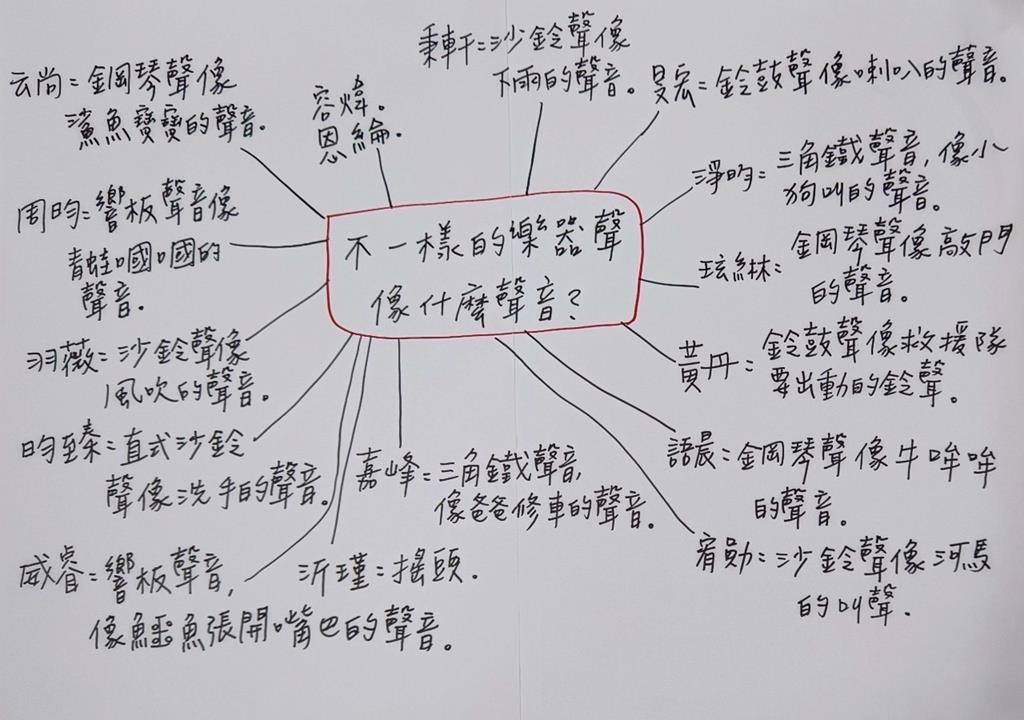 不一樣的樂器聲
像什麼聲音?
秉軒=沙鈴聲像
下雨的聲音。
旻宏=鈴鼓聲像喇叭的聲音。
淨昀=三角鐵聲音,像小
狗叫的聲音。
玹綝=鋼琴聲像敲門
的聲音。
黃丹=鈴鼓聲像救援隊
要出動的鈴聲。
語晨=鋼琴聲像牛哞哞
的聲音。
宥勛=沙鈴聲像河馬
的叫聲.
嘉峰=三角鐵聲音,
像爸爸修車的聲音。
沂瑾=搖頭.
威睿=響板聲音,
像鱷魚張開嘴巴的聲音。
昀臻=直式沙鈴
聲像洗手的聲音。
羽薇=沙鈴聲像
風吹的聲音。
周昀=響板聲音像
青蛙嘓嘓的
聲音.
云尚=鋼琴聲像
鯊魚寶寶的聲音.
容煒.
恩綸.